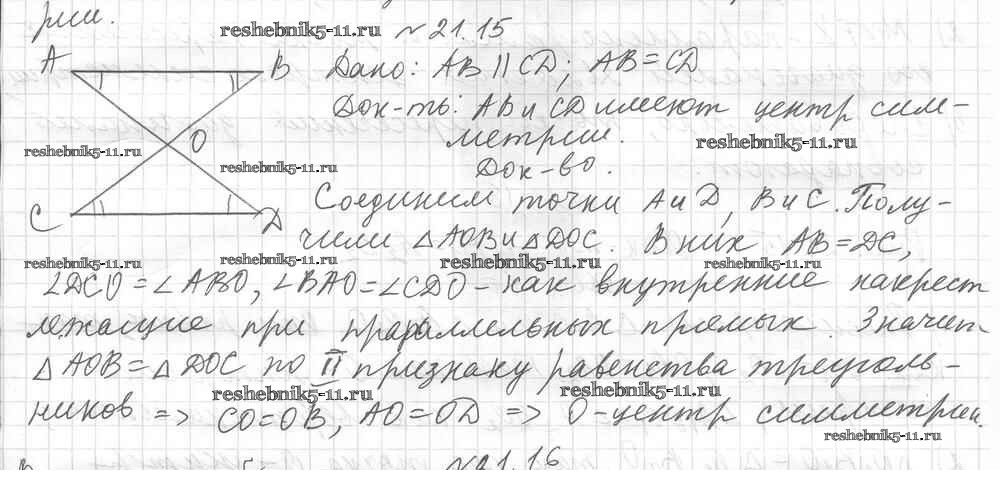 рии.
reshebnik5-11.ru №21.15
A B Дано: AB || CD; AB = CD
Док-ть: AB и CD имеют центр сим-
reshebnik5-11.ru O метрии. reshebnik5-11.ru
reshebnik5-11.ru Док-во.
C D Соединим точки A и D, B и C. Полу-
чили △AOB и △DOC. В них AB = DC,
reshebnik5-11.ru reshebnik5-11.ru reshebnik5-11.ru reshebnik5-11.ru
∠DCO = ∠ABO, ∠BAO = ∠CDO - как внутренние накрест
лежащие при параллельных прямых. Значит
△AOB = △DOC по II признаку равенства треуголь-
reshebnik5-11.ru reshebnik5-11.ru
ников => CO = OB, AO = OD => O - центр симметрии.
reshebnik5-11.ru
№21.16